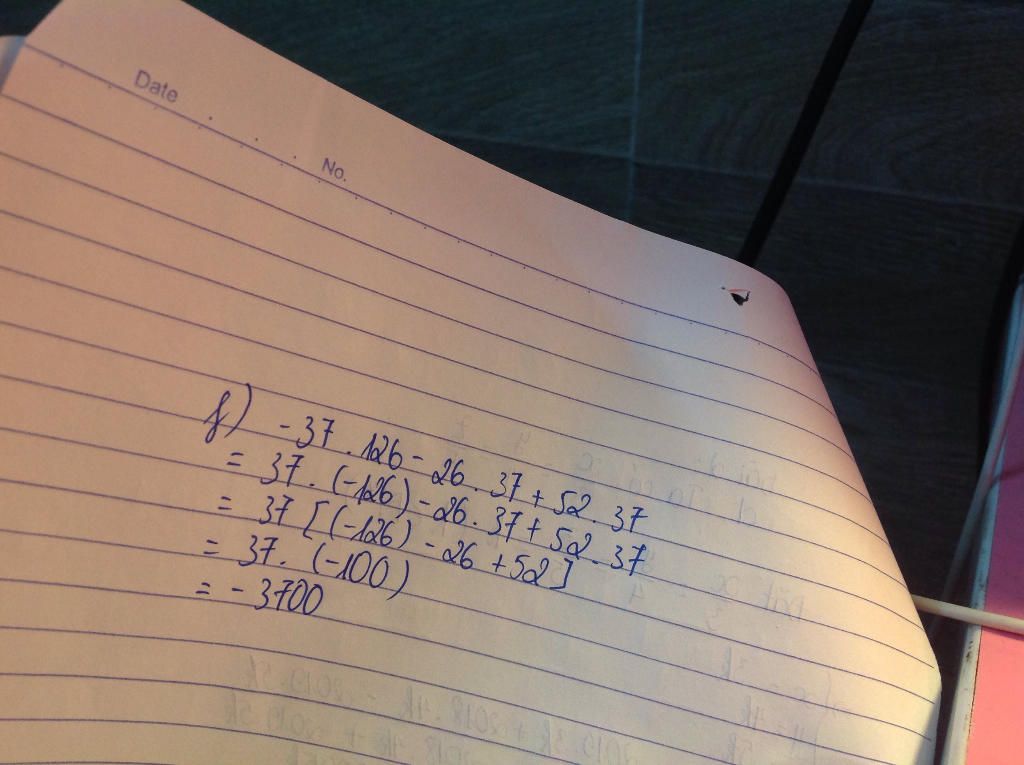 Date
No.
f) -37.126 - 26.37 + 52.37
= 37.(-126) - 26.37 + 52.37
= 37[(-126) - 26 + 52]
= 37.(-100)
= -3700